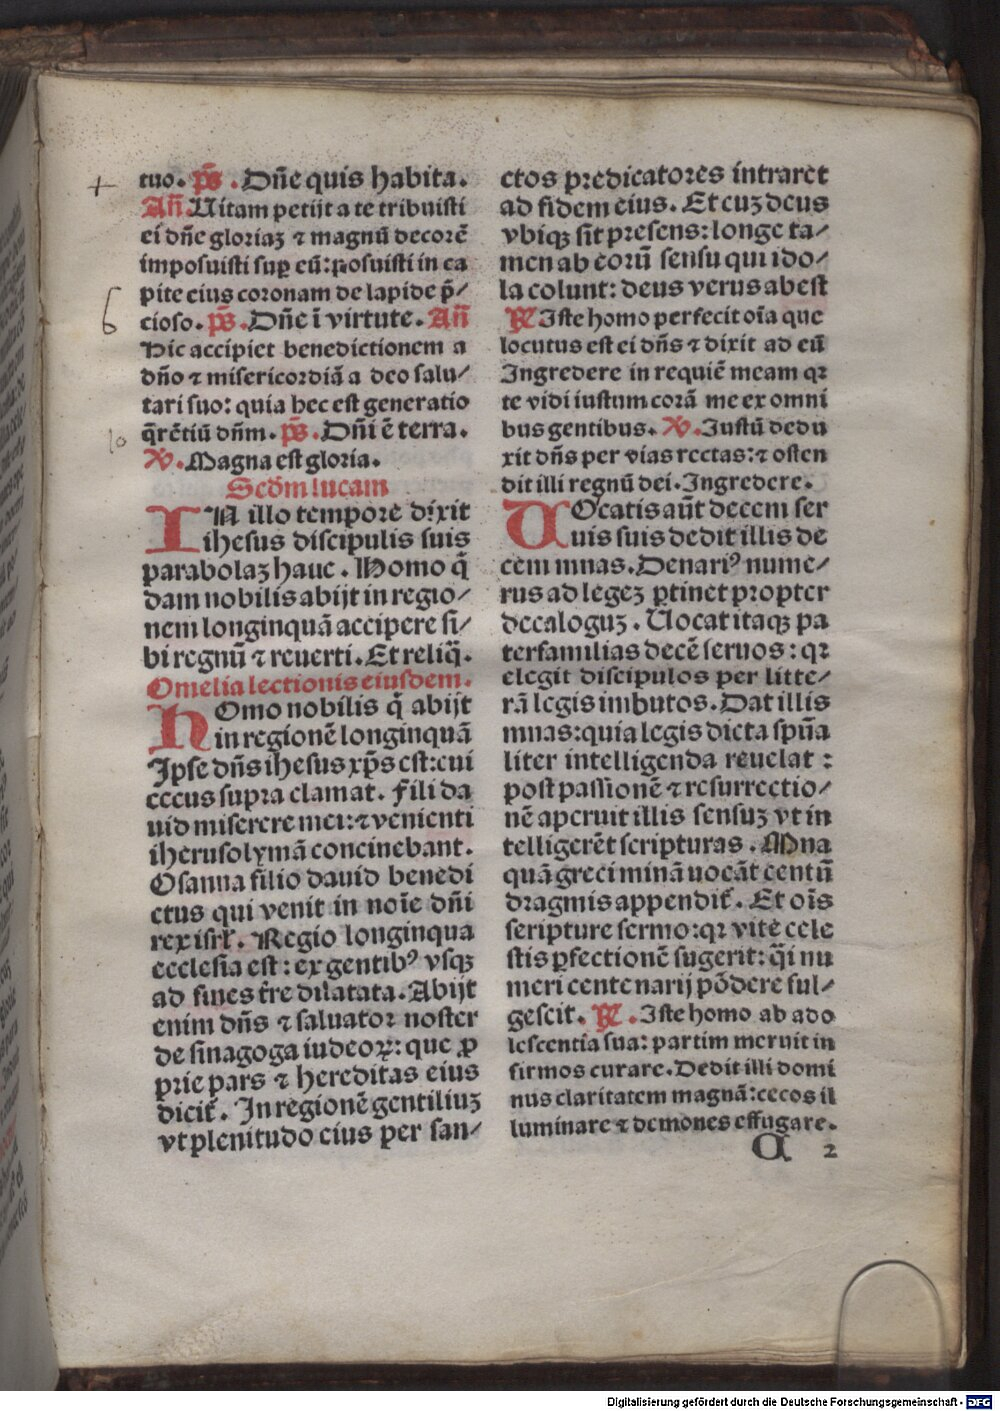 tuo. ps̄. Dn̄e quis habita.
An̄. Uitam petijt a te tribuisti
ei dn̄e gloriaꝫ ⁊ magnū decorē
imposuisti suꝑ eū: posuisti in ca
pite eius coronam de lapide p̄/
cioso. ps̄. Dn̄e ī virtute. An̄
Hic accipiet benedictionem a
dn̄o ⁊ misericordiā a deo salu/
tari suo: quia hec est generatio
q̄rētiū dn̄m. ps̄. Dn̄i ē terra.
ꝟ. Magna est gloria.
Scd̄m lucam
IN illo tempore dixit
ihesus discipulis suis
parabolaꝫ hanc. Homo q̄
dam nobilis abijt in regio/
nem longinquā accipere si/
bi regnū ⁊ reuerti. Et reliq̄.
Omelia lectionis eiusdem.
HOmo nobilis q̄ abijt
in regionē longinquā
Ipse dn̄s ihesus xp̄s est: cui
cecus supra clamat. fili da
uid miserere mei: ⁊ venienti
iherusolymā concinebant.
Osanna filio dauid benedi
ctus qui venit in noīe dn̄i
rex isrł. Regio longinqua
ecclesia est: ex gentibꝰ vsqꝫ
ad fines t̄re dilatata. Abijt
enim dn̄s ⁊ saluator noster
de sinagoga iudeoꝝ: que ꝓ
prie pars ⁊ hereditas eius
dicit᷑. In regionē gentiliuꝫ
vt plenitudo eius per san/
ctos predicatores intraret
ad fidem eius. Et cuꝫ deus
vbiqꝫ sit presens: longe ta/
men ab eorū sensu qui ido/
la colunt: deus verus abest
℟ Iste homo perfecit oīa que
locutus est ei dn̄s ⁊ dixit ad eū
Ingredere in requiē meam qꝛ
te vidi iustum corā me ex omni
bus gentibus. ꝟ. Iustū dedu
xit dn̄s per vias rectas: ⁊ osten
dit illi regnū dei. Ingredere.
UOcatis aūt decem ser
uis suis dedit illis de
cem mnas. Denariꝰ nume/
rus ad legeꝫ ꝑtinet propter
decaloguꝫ. Uocat itaqꝫ pa
terfamilias decē seruos: qꝛ
elegit discipulos per litte/
rā legis imbutos. Dat illis
mnas: quia legis dicta spūa
liter intelligenda reuelat:
post passionē ⁊ resurrectio/
nē aperuit illis sensuꝫ vt in
telligerēt scripturas. Mna
quā greci minā uocāt centū
dragmis appendit᷑. Et oīs
scripture sermo: qꝛ vite cele
stis ꝑfectionē sugerit: q̄i nu
meri centenarij pōdere ful/
gescit. ℟. Iste homo ab ado
lescentia sua: partim meruit in
firmos curare. Dedit illi domi
nus claritatem magnā: cecos il
luminare ⁊ demones effugare.
a 2
+
6
10
Digitalisierung gefördert durch die Deutsche Forschungsgemeinschaft - DFG